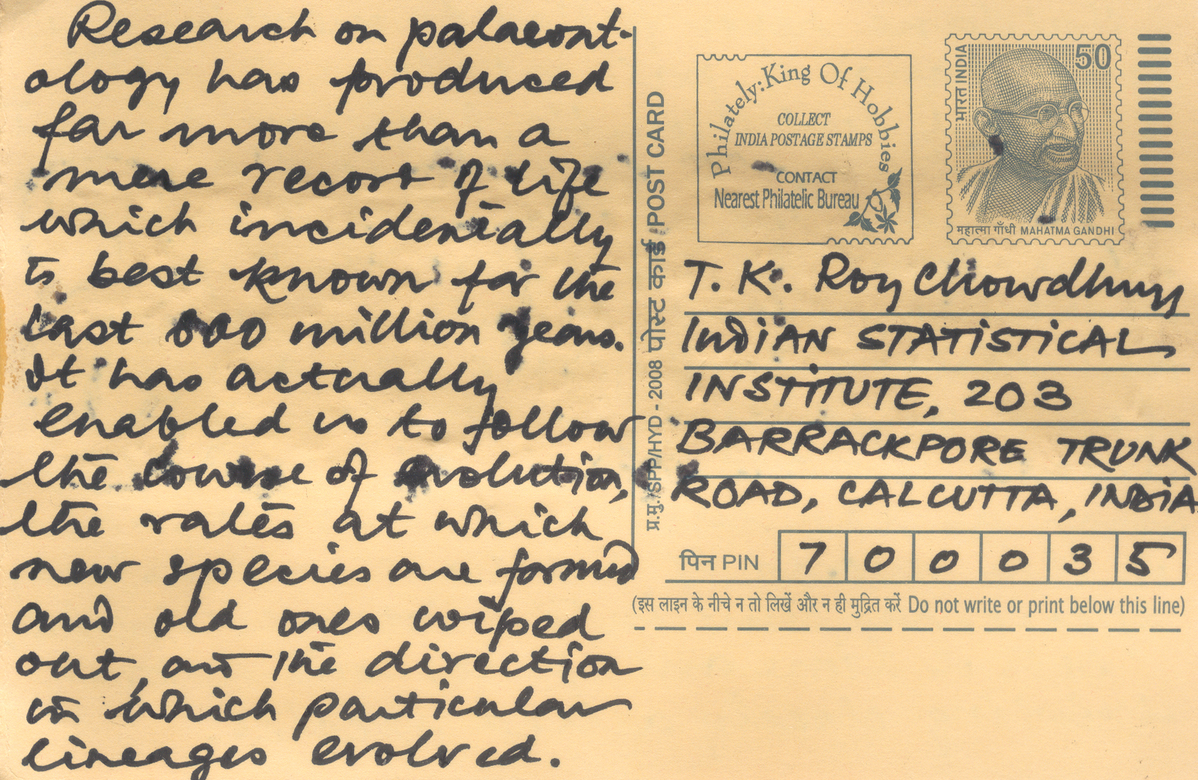 Research on palaeont-
ology has produced
far more than a
mere record of life
which incidentally
is best known for the
last 600 million years.
It has actually
enabled us to follow
the course of evolution,
the rates at which
new species are formed
and old ones wiped
out, and the direction
in which particular
lineages evolved.
प्र.मु./SPP/HYD - 2008 पोस्ट कार्ड POST CARD
Philately: King Of Hobbies
COLLECT
INDIA POSTAGE STAMPS
CONTACT
Nearest Philatelic Bureau
भारत INDIA
50
महात्मा गाँधी MAHATMA GANDHI
T. K. Roy Chowdhury
INDIAN STATISTICAL
INSTITUTE, 203
BARRACKPORE TRUNK
ROAD, CALCUTTA, INDIA
पिन PIN 7 0 0 0 3 5
(इस लाइन के नीचे न तो लिखें और न ही मुद्रित करें Do not write or print below this line)